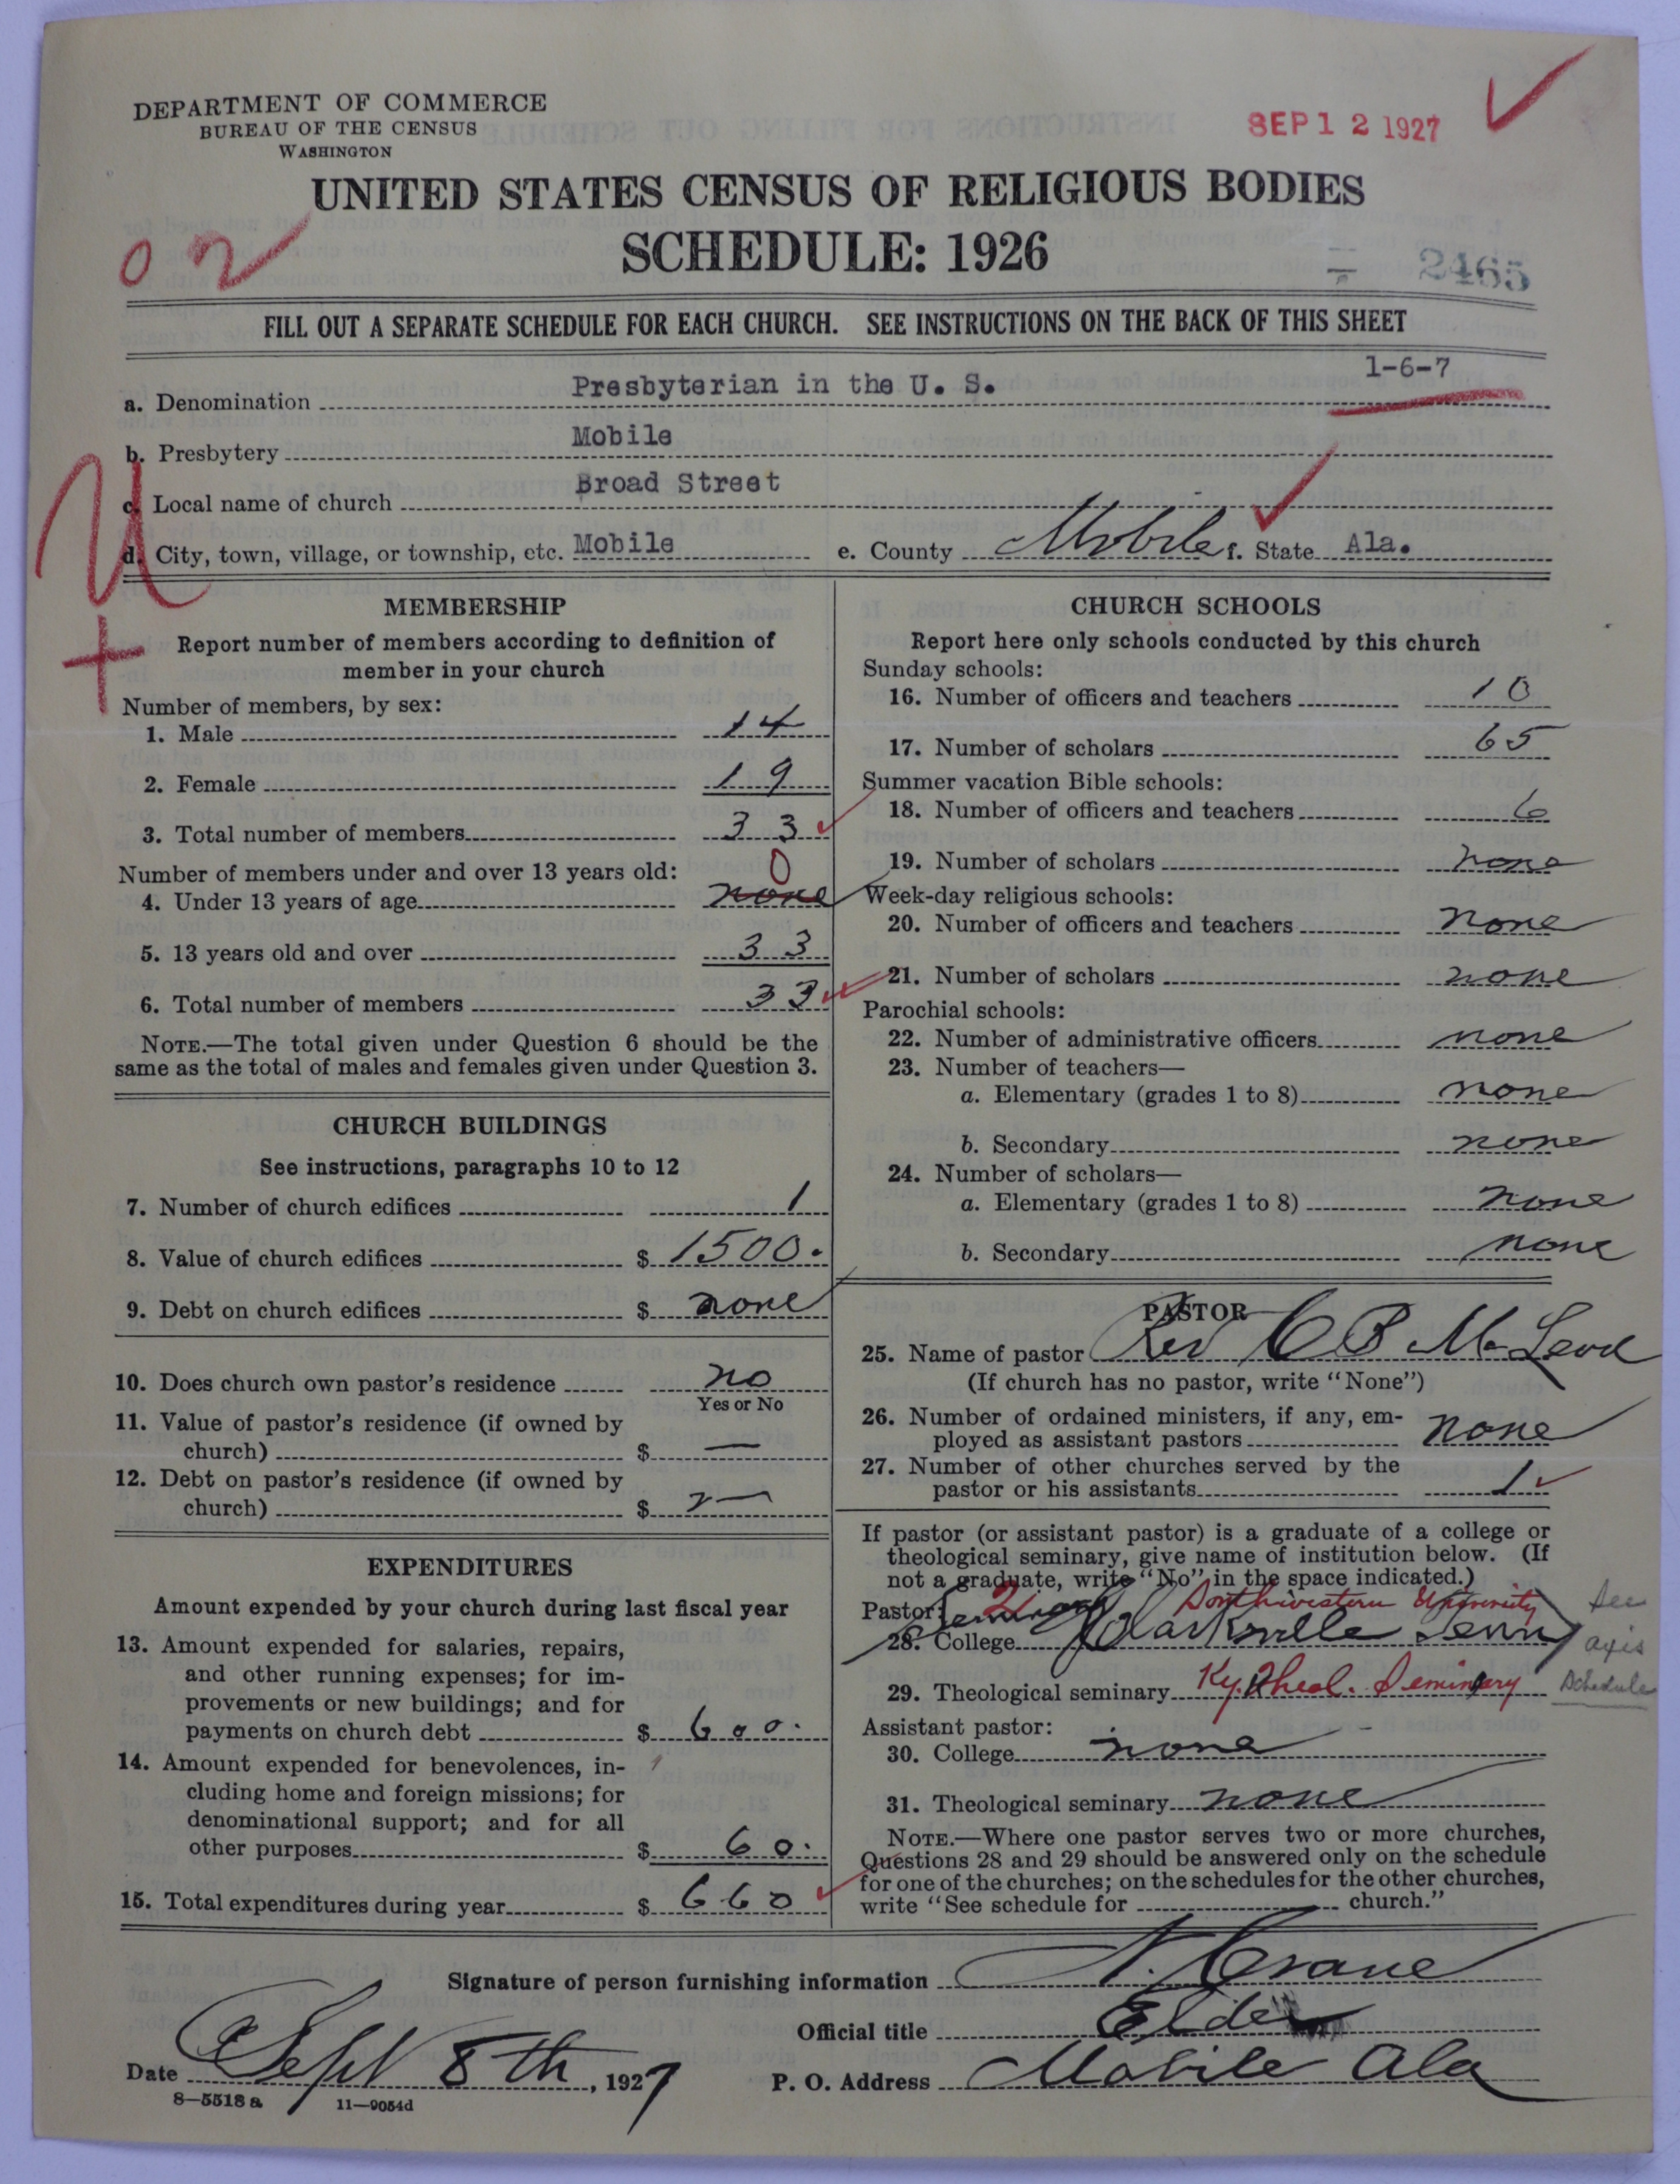 DEPARTMENT OF COMMERCE
BUREAU OF THE CENSUS
WASHINGTON
SEP 12 1927
UNITED STATES CENSUS OF RELIGIOUS BODIES
SCHEDULE: 1926
2465
FILL OUT A SEPARATE SCHEDULE FOR EACH CHURCH. SEE INSTRUCTIONS ON THE BACK OF THIS SHEET
1-6-7
a. Denomination Presbyterian in the U. S.
b. Presbytery Mobile
c. Local name of church Broad Street
d. City, town, village, or township, etc. Mobile e. County Mobile f. State Ala.
MEMBERSHIP
Report number of members according to definition of
member in your church
Number of members, by sex:
1. Male 14
2. Female 19
3. Total number of members 33
Number of members under and over 13 years old: 0
4. Under 13 years of age none
5. 13 years old and over 33
6. Total number of members 33
NOTE.—The total given under Question 6 should be the
same as the total of males and females given under Question 3.
CHURCH BUILDINGS
See instructions, paragraphs 10 to 12
7. Number of church edifices 1
8. Value of church edifices $ 1500.
9. Debt on church edifices $ none
10. Does church own pastor's residence no
Yes or No
11. Value of pastor's residence (if owned by
church) $ —
12. Debt on pastor's residence (if owned by
church) $ —
EXPENDITURES
Amount expended by your church during last fiscal year
13. Amount expended for salaries, repairs,
and other running expenses; for im-
provements or new buildings; and for
payments on church debt $ 600.
14. Amount expended for benevolences, in-
cluding home and foreign missions; for
denominational support; and for all
other purposes $ 60.
15. Total expenditures during year $ 660
CHURCH SCHOOLS
Report here only schools conducted by this church
Sunday schools:
16. Number of officers and teachers 10
17. Number of scholars 65
Summer vacation Bible schools:
18. Number of officers and teachers 6
19. Number of scholars none
Week-day religious schools:
20. Number of officers and teachers none
21. Number of scholars none
Parochial schools:
22. Number of administrative officers none
23. Number of teachers—
a. Elementary (grades 1 to 8) none
b. Secondary none
24. Number of scholars—
a. Elementary (grades 1 to 8) none
b. Secondary none
PASTOR
25. Name of pastor Rev C B McLeod
(If church has no pastor, write "None")
26. Number of ordained ministers, if any, em-
ployed as assistant pastors none
27. Number of other churches served by the
pastor or his assistants 1
If pastor (or assistant pastor) is a graduate of a college or
theological seminary, give name of institution below. (If
not a graduate, write "No" in the space indicated.)
Pastor: Southwestern University See
28. College Clarksville Tenn
29. Theological seminary Ky. Theol. Seminary Schedule
Assistant pastor:
30. College none
31. Theological seminary none
NOTE.—Where one pastor serves two or more churches,
Questions 28 and 29 should be answered only on the schedule
for one of the churches; on the schedules for the other churches,
write "See schedule for church."
Signature of person furnishing information N. Crane
Official title Elder
Date Sept 8th, 1927 P. O. Address Mobile Ala
8—5518 a 11—9054d